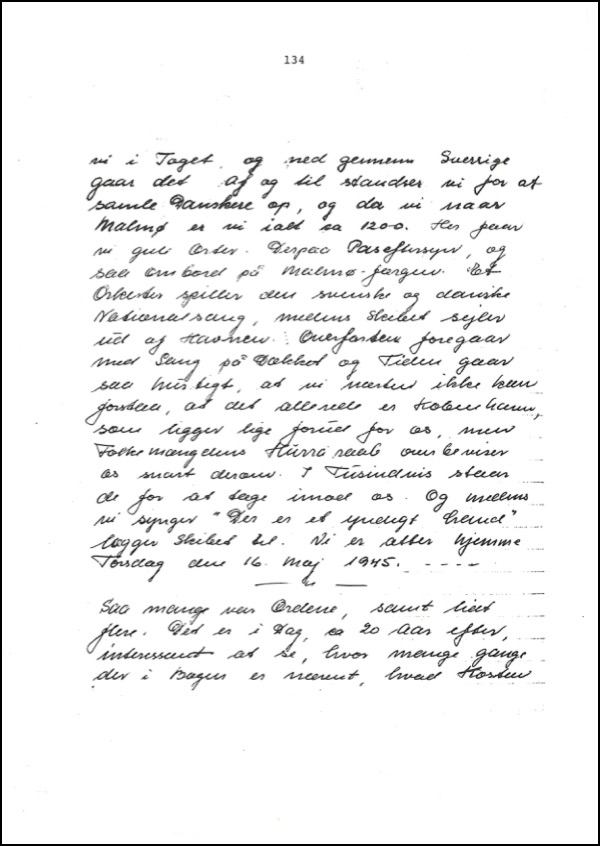 134
vi i Toget, og ned gennem Sverrige
gaar det af og til standser vi for at
samle Danskere op, og da vi naar
Malmø er vi ialt ca 1200. Her faar
vi gule Orter. Derpaa Paseftersyn, og
saa ombord på Malmø-færgen. Et
Orkester spiller den svenske og danske
Nationalsang, medens Skibet sejler
ud af Havnen. Overfarten foregaar
med Sang på Dækket og Tiden gaar
saa hurtigt, at vi næsten ikke kan
forstaa, at det allerede er København,
som ligger lige forud for os, men
Folkemængdens Hurra raab overbeviser
os snart derom. I Tusindvis staar
de for at tage imod os. Og medens
vi synger "Der er et yndigt Land"
lægger Skibet til. Vi er atter hjemme
Torsdag den 16. Maj 1945. ----
Saa mange var Ordene, samt lidt
flere. Det er i Dag, ca 20 Aar efter,
interessant at se, hvor mange gange
der i Bogen er nævnt, hvad Kosten